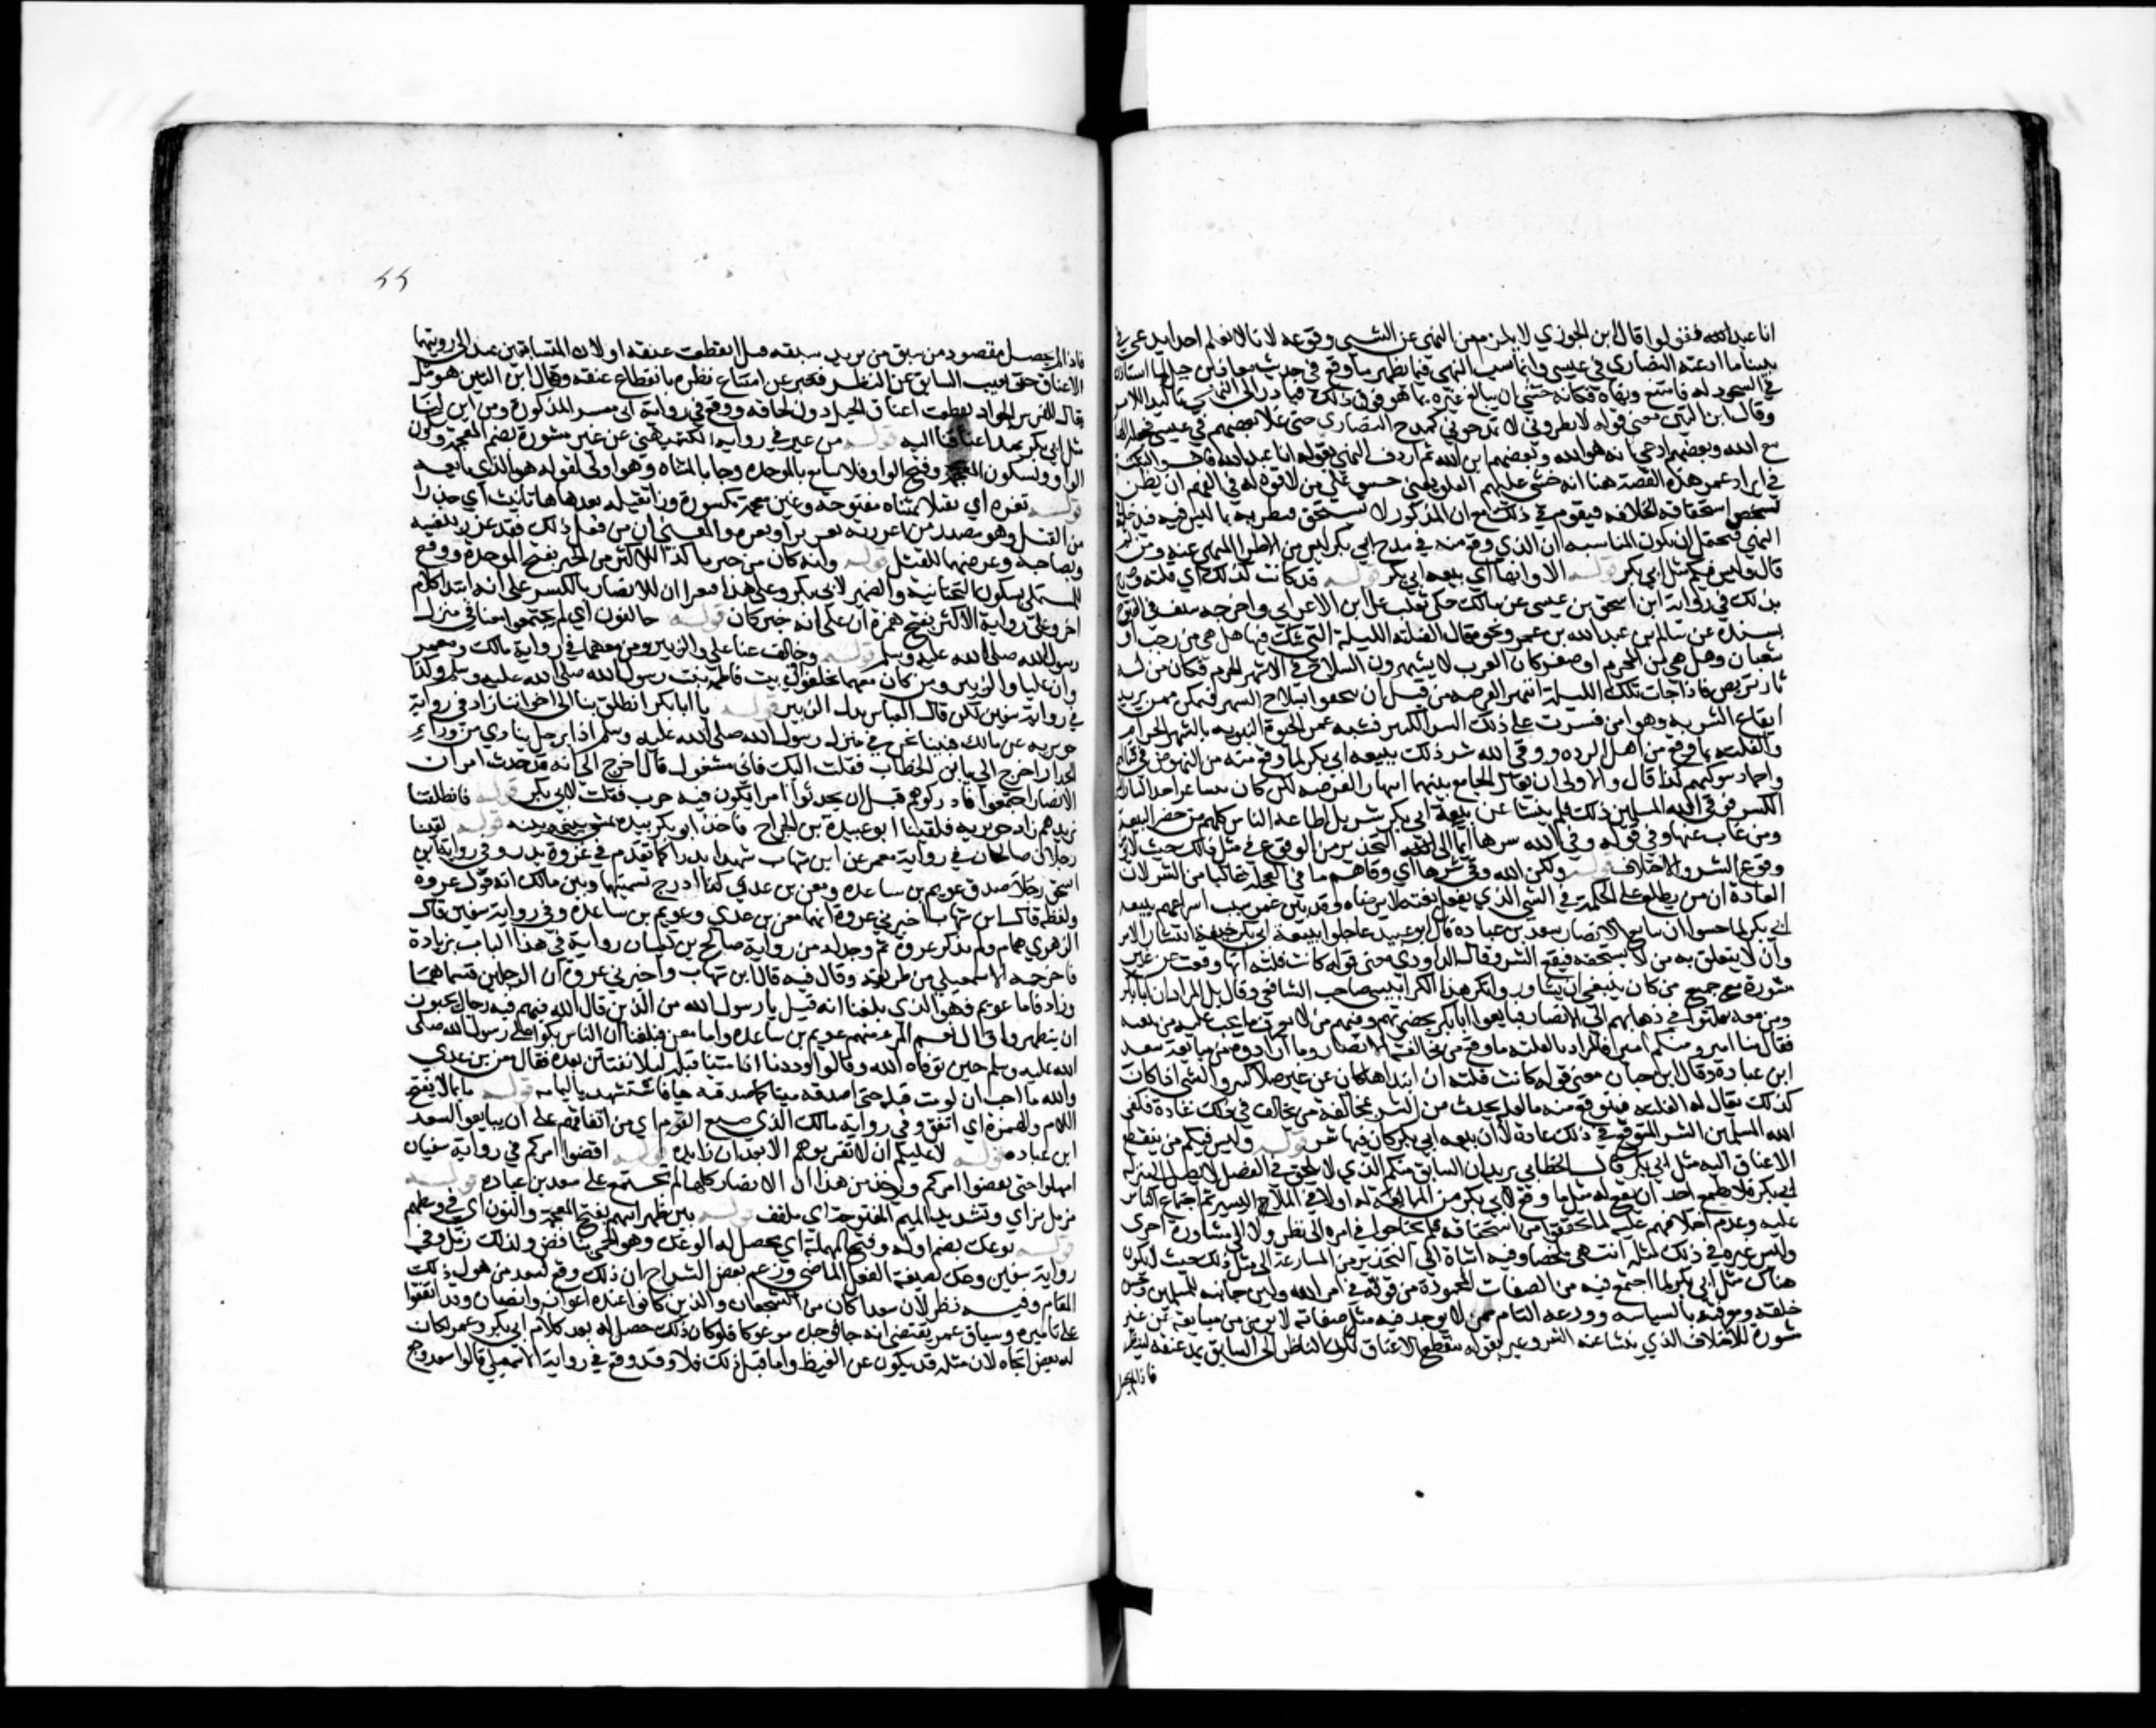 انا عبد الله فقولوا قال ابن الجوزي لا يلزم من النهي عن الشي وقوعه لانا لا نعلم احدا ادعى في
نبينا ما ادعته النصارى في عيسى وانما سبب النهي فيما يظهر ما وقع في حديث معاذ بن جبل لما استاذن
في السجود له فامتنع ونهاه فكانه خشي ان يبالغ غيره بما هو فوق ذلك فبادر الى النهي تاكيدا للامر
وقال ابن التين معنى قوله لا تطروني لا تمدحوني كمدح النصارى حتى غلا بعضهم في عيسى فجعله الها
مع الله وبعضهم ادعى انه هو الله وبعضهم ابن الله ثم اردف النهي بقوله انا عبد الله
في ايراد عمر هذه القصة هنا انه خشي عليهم الغلو يعني خشي على من لا قوة له في الفهم ان يظن
بشخص استحقاقه الخلافة فيقوم في ذلك مع ان المذكور لا يستحق فيطريه بما ليس فيه
النهي فيحتمل ان يكون المناسبة ان الذي وقع منه في مدح ابي بكر ليس من الاطرا المنهي عنه ومن ثم
قال وليس فيكم مثل ابي بكر قوله الا وانها اي بيعة ابي بكر قوله قد كانت كذلك اي فلتة وصرح
بذلك في رواية ابن اسحق بن عيسى عن مالك حكى ثعلب عن ابن الاعرابي واخرجه سيف في الفتوح
بسنده عن سالم بن عبد الله بن عمر ونحوه قال الفلتة الليلة التي يشك فيها هل هي من رجب او
شعبان وهل هي من المحرم او صفر كان العرب لا يشهرون السلاح في الاشهر الحرم فكان من له
ثار تربص فاذا جات تلك الليلة انتهز الفرصة من قبل ان يتحقق انسلاخ الشهر فيتمكن ممن يريد
ايقاع الشر به وهو امن فيترتب على ذلك الشر الكثير فشبه عمر الحيوة النبوية بالشهر الحرام
والفلتة بما وقع من اهل الردة ووقى الله شر ذلك ببيعة ابي بكر لما وقع منه من النهوض في قتالهم
واخماد شوكتهم كذا قال والاولى ان يقال الجامع بينهما انتهاز الفرصة لكن كان ينشا عن اخذ الثار
الكثير فوقى الله المسلمين ذلك فلم ينشا عن بيعة ابي بكر شر بل اطاعه الناس كلهم من حضر البيعة
ومن غاب عنها وفي قوله وقى الله شرها ايما الى التحذير من الوقوع في مثل ذلك حيث لا يومن
وقوع الشر والاختلاف قوله ولكن الله وقى شرها اي وقاهم ما في العجلة غالبا من الشر لان
العادة ان من لم يطلع على الحكمة في الشي الذي يفعل بغتة لا يرضاه وقد بين عمر سبب اسراعهم ببيعة
ابي بكر لما خشوا ان يبايع الانصار سعد بن عبادة قال ابو عبيد عاجلوا ببيعة ابي بكر خيفة انتشار الامر
وان لا يتعلق به من لا يستحقه فيقع الشر وقال الداودي معنى قوله كانت فلتة انها وقعت عن غير
مشورة مع جميع من كان ينبغي ان يشاور وانكر هذا الكرابيسي صاحب الشافعي وقال بل المراد ان ابا بكر
ومن معه تفلتوا في ذهابهم الى الانصار فبايعوا ابا بكر بحضرتهم وفيهم من لا يعرف ما يجب عليه من بيعته
فقال منا امير ومنكم امير فالمراد بالفلتة ما وقع من مخالفة الانصار وما ارادوه من مبايعة سعد
ابن عبادة وقال ابن حبان معنى قوله كانت فلتة ان ابتداها كان عن غير ملا كثير والشي اذا كان
كذلك يقال له الفلتة فيتوقع منه ما لعله يحدث من الشر بمخالفة من يخالف في ذلك عادة فكفى
الله المسلمين الشر المتوقع في ذلك عادة لا ان بيعة ابي بكر كان فيها شر قوله وليس فيكم من تقطع
الاعناق اليه مثل ابي بكر قال الخطابي يريد ان السابق منكم الذي لا يلحق في الفضل لا يصل الى منزلة
ابي بكر فلا يطمع احد ان يقع له مثل ما وقع لابي بكر من المبايعة له اولا في الملا اليسير ثم اجتماع الناس
عليه وعدم اختلافهم عليه لما تحققوا من استحقاقه فلم يحتاجوا في امره الى نظر ولا الى مشاورة اخرى
وليس غيره في ذلك مثله انتهى ملخصا وفيه اشارة الى التحذير من المسارعة الى مثل ذلك حيث لا يكون
هناك مثل ابي بكر لما اجتمع فيه من الصفات المحمودة من قوته في امر الله ولين جانبه للمسلمين وحسن
خلقه ومعرفته بالسياسة وورعه التام ممن لا يوجد فيه مثل صفاته لا يومن من مبايعته عن غير
مشورة الاختلاف الذي ينشا عنه الشر وعبر بقوله تنقطع الاعناق لكون الناظر الى السابق يمد عنقه لينظر
فاذا لم يحصل
فاذا لم يحصل مقصوده من سبق من يريد سبقه قيل انقطعت عنقه او لان المتسابقين تمتد الى رويتهما
الاعناق حتى يغيب السابق عن النظر فعبر عن امتناع نظره بانقطاع عنقه وقال ابن التين هو مثل
يقال للفرس الجواد تقطعت اعناق الخيل دون لحاقه ووقع في رواية ابي معشر المذكورة ومن اين لنا
مثل ابي بكر تمد اعناقنا اليه قوله من غير في رواية الكشميهني عن غير مشورة بضم المعجمة وسكون
الواو وبسكون المعجمة وفتح الواو فلا يبايع بالموحدة وجا بالمثناة وهو اولى لقوله هو الذي بايعه
قوله تغرة ان يقتلا بمثناه مفتوحة وغين معجمة مكسورة ورا ثقيلة بعدها ها تانيث اي حذرا
من القتل وهو مصدر من اغررته تغريرا وتغرة والمعنى ان من فعل ذلك فقد غرر بنفسه
وبصاحبه وعرضهما للقتل قوله وانه كان من خبرنا كذا للاكثر من الخبر بفتح الموحدة ووقع
للمستملي بسكون التحتانية والضمير لابي بكر وعلى هذا فيقرا ان الانصار بالكسر على انه ابتدا كلام
اخر وعلى رواية الاكثر بفتح همزة ان على انه خبر كان قوله خالفونا اي لم يجتمعوا معنا في منزل
رسول الله صلى الله عليه وسلم قوله وخالف عنا علي والزبير ومن معهما في رواية مالك ومعمر
وان عليا والزبير ومن كان معهما تخلفوا في بيت فاطمة بنت رسول الله صلى الله عليه وسلم وكذا
في رواية سفين لكن قال العباس بدل الزبير قوله يا ابا بكر انطلق بنا الى اخواننا زاد في رواية
جويرية عن مالك فبينا نحن في منزل رسول الله صلى الله عليه وسلم اذا برجل ينادي من وراء
الجدار اخرج الي يا ابن الخطاب فقلت اليك فاني مشغول قال اخرج الي انه قد حدث امر ان
الانصار اجتمعوا فادركوهم قبل ان يحدثوا امرا يكون فيه حرب فقلت لابي بكر قوله فانطلقنا
نريدهم زاد جويرية فلقينا ابو عبيدة بن الجراح فاخذ ابو بكر بيده يمشي بيني وبينه قوله لقينا
رجلان صالحان في رواية معمر عن ابن شهاب شهدا بدرا كما تقدم في غزوة بدر وفي رواية ابن
اسحق رجلا صدق عويم بن ساعدة ومعن بن عدي كذا ادرج تسميتهما وبين مالك انه قول عروة
ولفظه قال ابن شهاب اخبرني عروة انهما معن بن عدي وعويم بن ساعدة وفي رواية سفين قال
الزهري هما ولم يذكر عروة ثم وجدته من رواية صالح بن كيسان رواية في هذا الباب بزيادة
فاخرجه الاسمعيلي من طريقه وقال فيه قال ابن شهاب واخبرني عروة ان الرجلين فسماهما
وزاد فاما عويم فهو الذي بلغنا انه قيل يا رسول الله من الذين قال الله فيهم فيه رجال يحبون
ان يتطهروا قال نعم المرء منهم عويم بن ساعدة واما معن فبلغنا ان الناس بكوا على رسول الله صلى
الله عليه وسلم حين توفاه الله وقالوا وددنا انا متنا قبله ليلا نفتتن بعده فقال معن بن عدي
والله ما احب ان لو مت قبله حتى اصدقه ميتا كما صدقته حيا فاستشهد باليمامه قوله ما تمالا بفتح
اللام والهمزة اي اتفق وفي رواية مالك الذي صنع القوم اي من اتفاقهم على ان يبايعوا لسعد
ابن عباده قوله لا عليكم ان لا تقربوهم لا بعد ان زايده قوله اقضوا امركم في رواية سفيان
امهلوا حتى تقضوا امركم ويوخذ من هذا ان الانصار كلها لم تجتمع على سعد بن عبادة قوله
مزمل بزاي وتشديد الميم المفتوحة اي ملفف قوله بين ظهرانيهم بفتح المعجمة والنون اي في وسطهم
قوله يوعك بضم اوله وفتح المهملة اي يحصل له الوعك وهو الحمى بنافض ولذلك زمل وفي
رواية سفين وعك بصيغة الفعل الماضي وزعم بعض الشراح ان ذلك وقع لسعد من هول ذلك
المقام وفيه نظر لان سعدا كان من الشجعان والذين كانوا عنده اعوانه وانصاره وقد اتفقوا
على تاميره وسياق عمر يقتضي انه جا فوجده موعوكا فلو كان ذلك حصل له بعد كلام ابي بكر وعمر لكان
له بعض اتجاه لان مثله قد يكون عن الغيظ واما قبل ذلك فلا وقد وقع في رواية الاسمعيلي قالوا سعد وجع